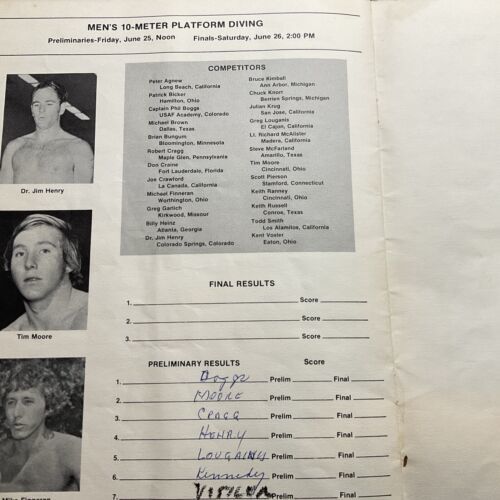 MEN'S 10-METER PLATFORM DIVING
Preliminaries-Friday, June 25, Noon Finals-Saturday, June 26, 2:00 PM
COMPETITORS
Peter Agnew
Long Beach, California
Patrick Bicker
Hamilton, Ohio
Captain Phil Boggs
USAF Academy, Colorado
Michael Brown
Dallas, Texas
Brian Bungum
Bloomington, Minnesota
Robert Cragg
Maple Glen, Pennsylvania
Don Craine
Fort Lauderdale, Florida
Joe Crawford
La Canada, California
Michael Finneran
Worthington, Ohio
Greg Garlich
Kirkwood, Missour
Billy Heinz
Atlanta, Georgia
Dr. Jim Henry
Colorado Springs, Colorado
Bruce Kimball
Ann Arbor, Michigan
Chuck Knorr
Berrien Springs, Michigan
Julian Krug
San Jose, California
Greg Louganis
El Cajon, California
Lt. Richard McAlister
Madera, California
Steve McFarland
Amarillo, Texas
Tim Moore
Cincinnati, Ohio
Scott Pierson
Stamford, Connecticut
Keith Ranney
Cincinnati, Ohio
Keith Russell
Conroe, Texas
Todd Smith
Los Alamitos, California
Kent Vosler
Eaton, Ohio
Dr. Jim Henry
Tim Moore
Mike Finneran
FINAL RESULTS
1. Score
2. Score
3. Score
PRELIMINARY RESULTS Score
1. Boggs Prelim Final
2. MOORE Prelim Final
3. CRAGG Prelim Final
4. HENRY Prelim Final
5. LOUGAINIS Prelim Final
6. Kennedy Prelim Final
7. Prelim Final